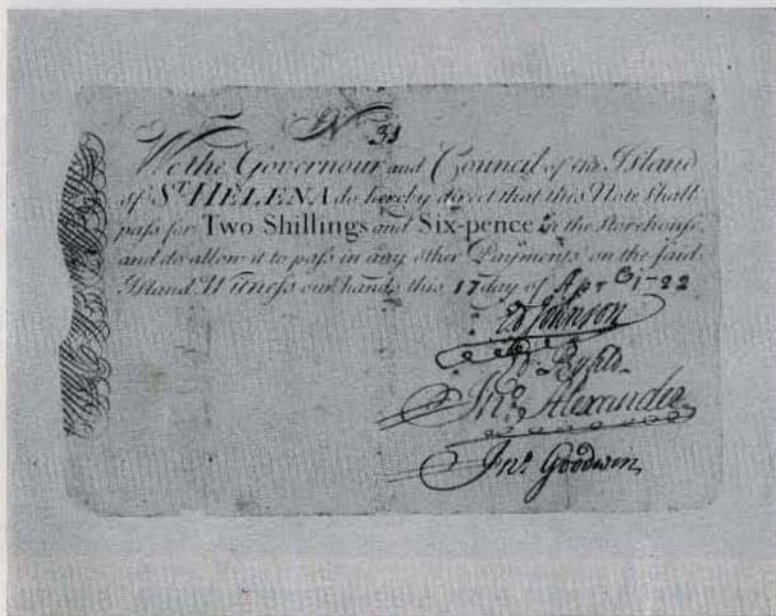 No 31
We the Governour and Council of the Island
of St HELENA do hereby direct that this Note shall
pass for Two Shillings and Six-pence in the Storehouse,
and do allow it to pass in any other Payments on the said
Island. Witness our hands this 17 day of Apr 22
Ed Johnson
Jno Alexander
Jno Goodwin